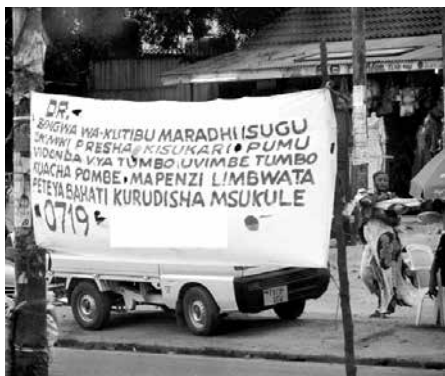 DR.
BINGWA WA-KUTIBU MARADHI ISUGU
PRESHA KISUKARI PUMU
VIDONDA VYA TUMBO UVIMBE TUMBO
KUACHA POMBE MAPENZI LIMBWATA
PETE YA BAHATI KURUDISHA MSUKULE
0719